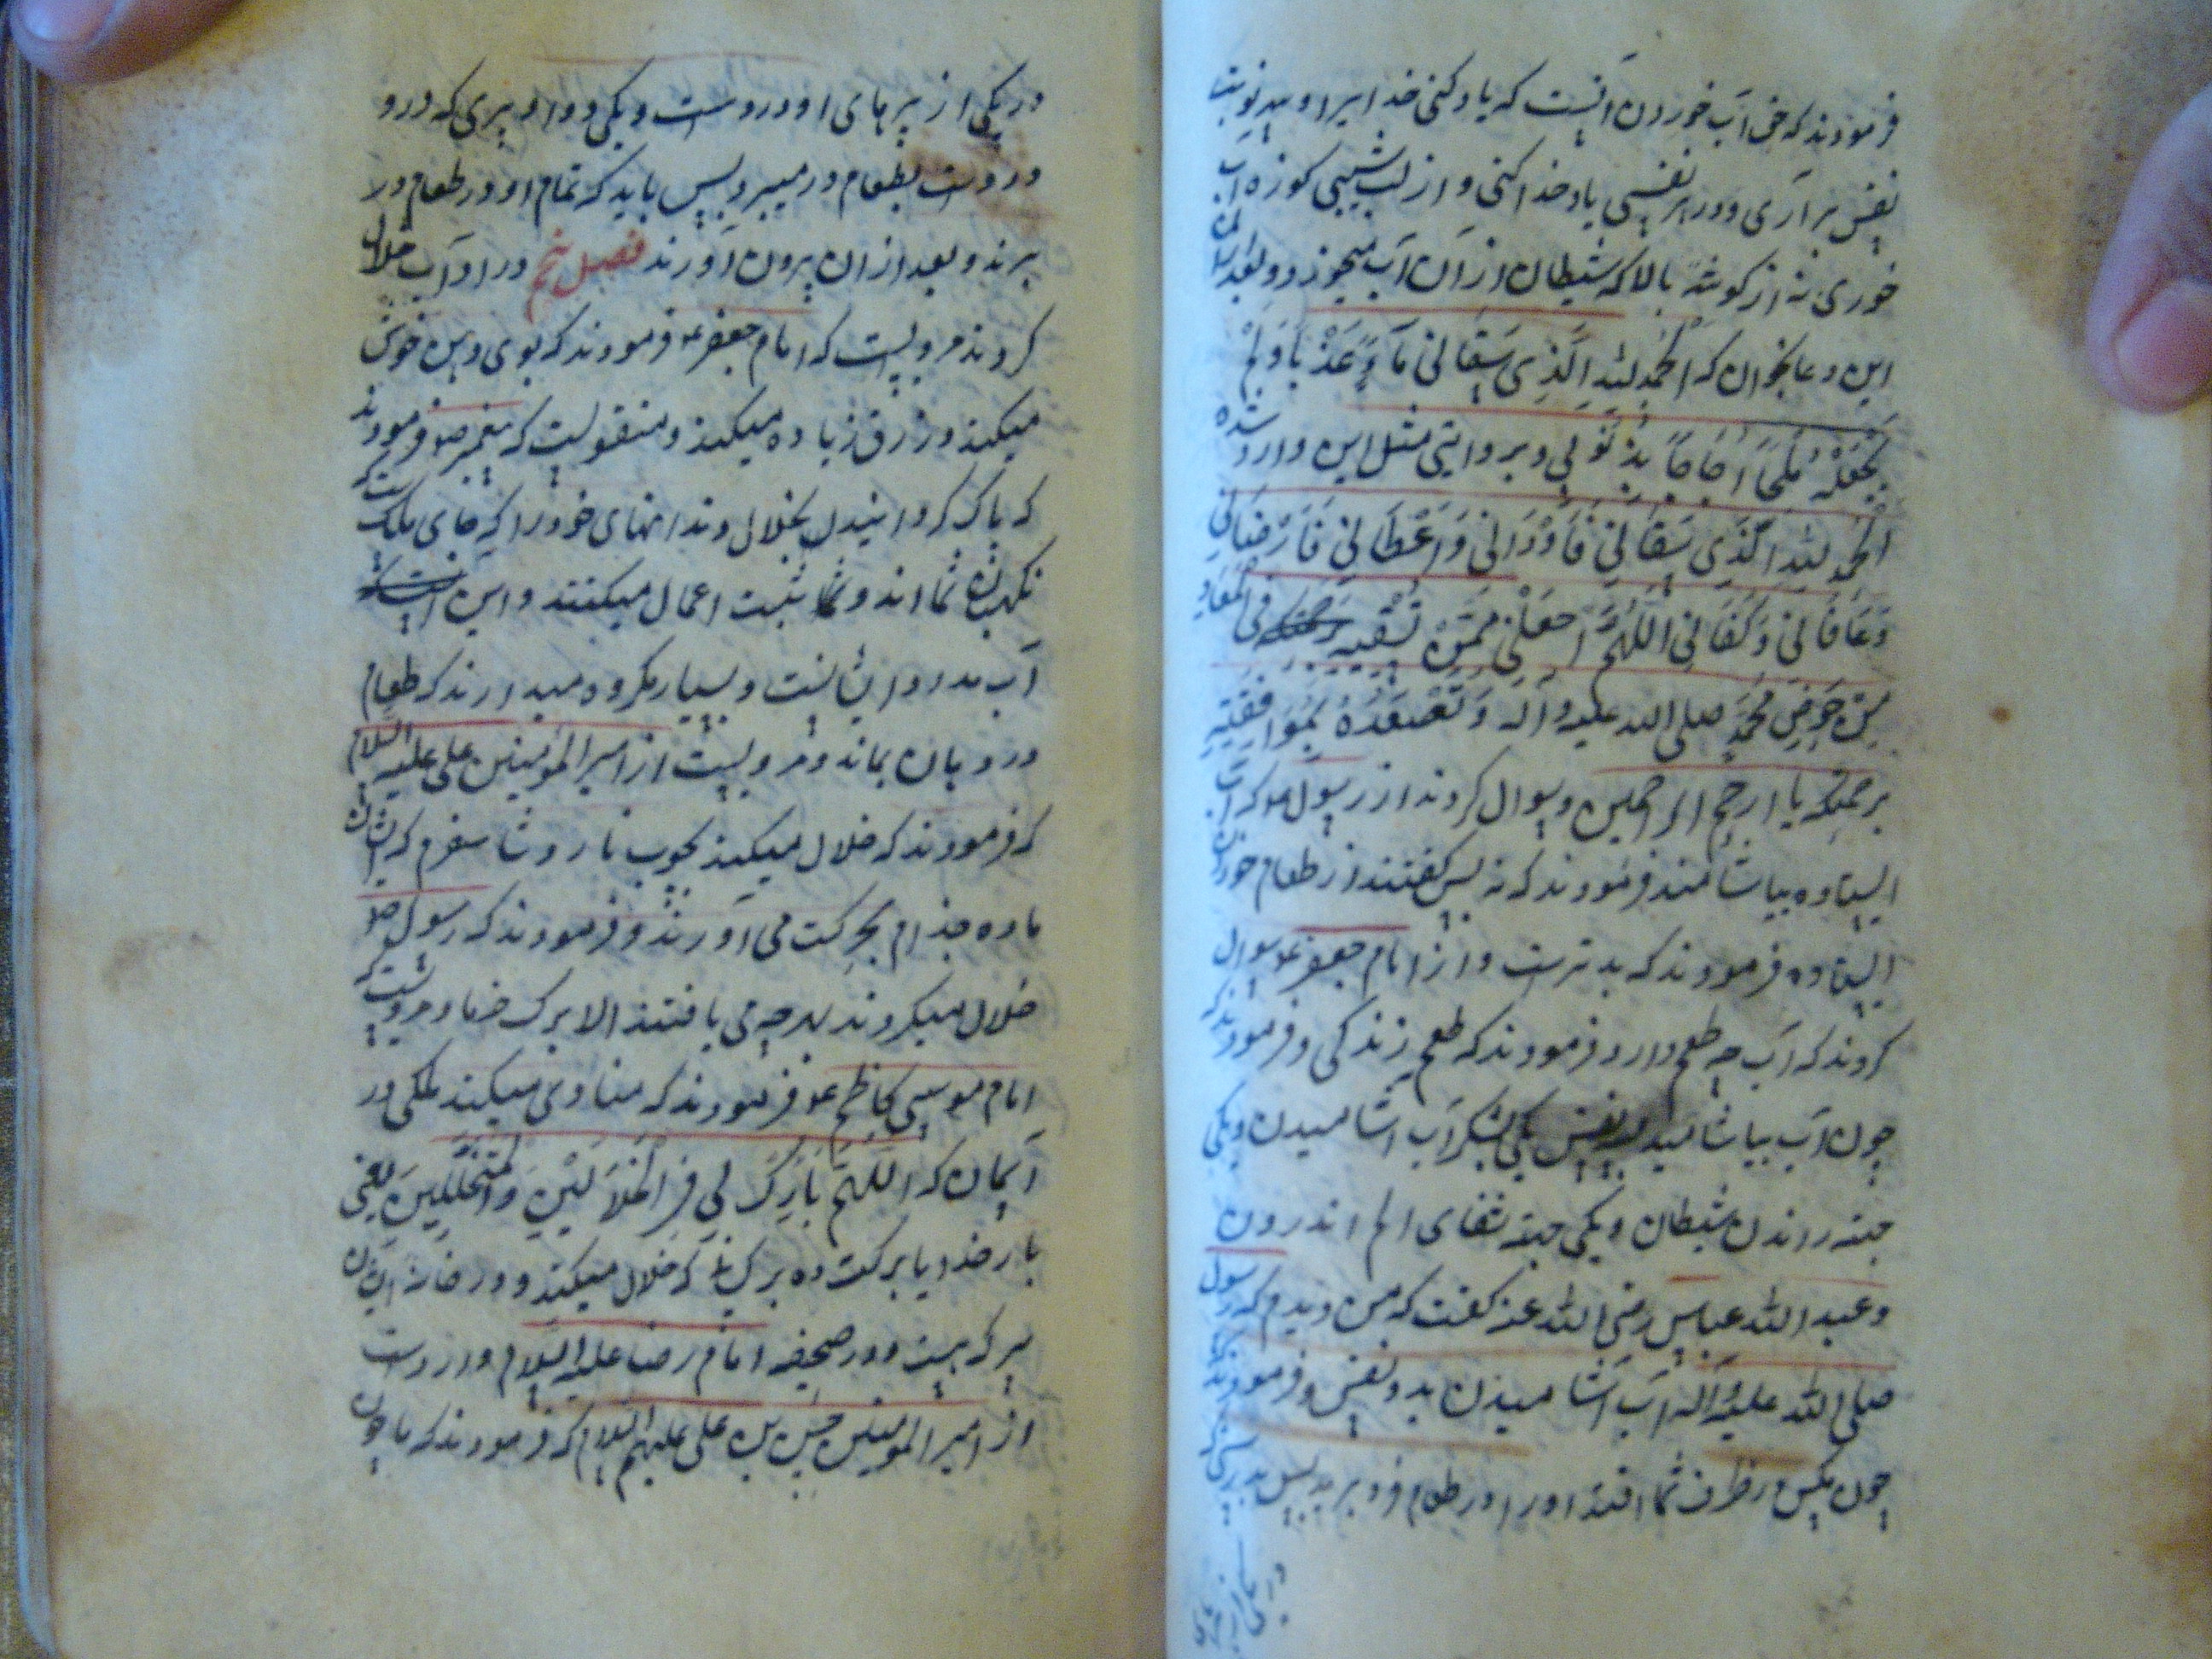 فرمودند که حق آب خوردن آنست که یاد کنی خدایرا و بهر نوبت
نفس برآری و در هر نفسی یاد خدا کنی و از لب شیبی کوزه آب
خوری نه از کوشهٔ بالا که شیطان از آن آب میخورد و بعد
این دعا بخوان که اَلحَمدُ لِلّهِ الَّذِی سَقَانِی مَآءً عَذْبًا وَلَمْ
یَجْعَلْهُ مِلْحًا اُجَاجًا بِذُنُوبِی و بروایتی مثل این وارد شده
اَلحَمدُ لِلّهِ الَّذِی سَقَانِی فَاَرْوَانِی وَاَعْطَانِی فَاَرْضَانِی
وَعَافَانِی وَکَفَانِی اَللّهُمَّ اجْعَلْنِی مِمَّنْ تَسْقِیهِ فِی الْمَعَادِ
مِنْ حَوْضِ مُحَمَّدٍ صلی الله علیه و آله وَتُسْعِدُهُ بِمُوَافَقَتِهِ
برحمتک یا ارحم الراحمین و سوال کردند از رسول ص که آب
ایستاده بیاشامند فرمودند که نه پس کفتند از طعام خوردن
ایستاده فرمودند که بدترست و از امام جعفر ع سوال
کردند که آب چه طعم دارد فرمودند که طعم زندکی و فرمودند که
چون آب بیاشامید نفس یکی شکر آب آشامیدن و یکی
جهته راندن شیطان و یکی جهته شفای الم اندرون
و عبد الله عباس رضی الله عنه کفت که من دیدم که رسول
صلی الله علیه و آله آب آشامیدن بدو نفس و فرمودند
چون مکس در ظرف شما افتد او را در طعام فرو برید پس
در یکی از پرهای او در دوست و یکی دوا و پری که درو
درد است بطعام در میبرد پس باید که تمام او در طعام در
برند و بعد از آن بیرون آورند فصل پنجم در آداب خلال
کردن مرویست که امام جعفر ع فرمودند که بوی دهن خوش
میکند و رزق زیاده میکند و منقولست که پیغمبر ص فرمودند
که پاک کردانیدن بخلال دندانهای خود را که جای ملک
نکهبان شما اند و شما ثبت اعمال میکنند و این
آب مداد ایشانست و بسیار مکروه میدارند که طعام
در دهان بماند و مرویست از امیر المؤمنین علی علیه السلام
که فرمودند که خلال میکنید بچوب نار و شاسفرم که ایشان
ماده جذام بحرکت می آورند و فرمودند که رسول ص
خلال میکردند بهر چه می یافتند الا برک خرما و مرویست که
امام موسی کاظم ع فرمودند که منادی میکند ملکی در
آسمان که اَللّهُمَّ بَارِکْ لِی فِی الْخَلَّالِینَ وَالْمُتَخَلِّلِینَ یعنی
بار خدایا برکت ده بر که خلال میکنند و در خانه ایشان
سرکه هست و در صحیفه امام رضا علیه السلام وارد است
از امیر المؤمنین حسین بن علی علیهم السلام که فرمودند که ما چون